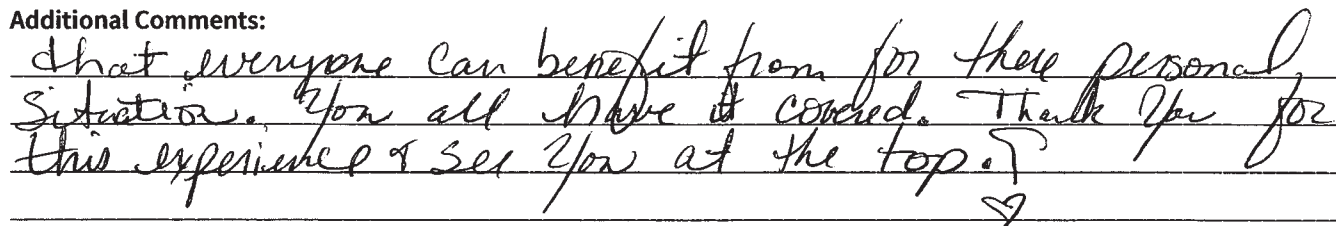 Additional Comments:
that everyone can benefit from for there personal
situation. You all have it covered. Thank You for
this experience & see You at the top.